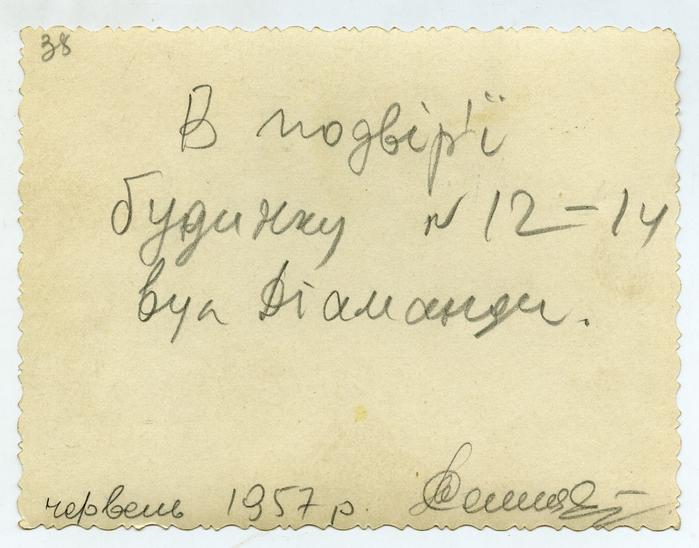 38
В подвір'ї
будинку № 12-14
вул Діаманди.
червень 1957 р.